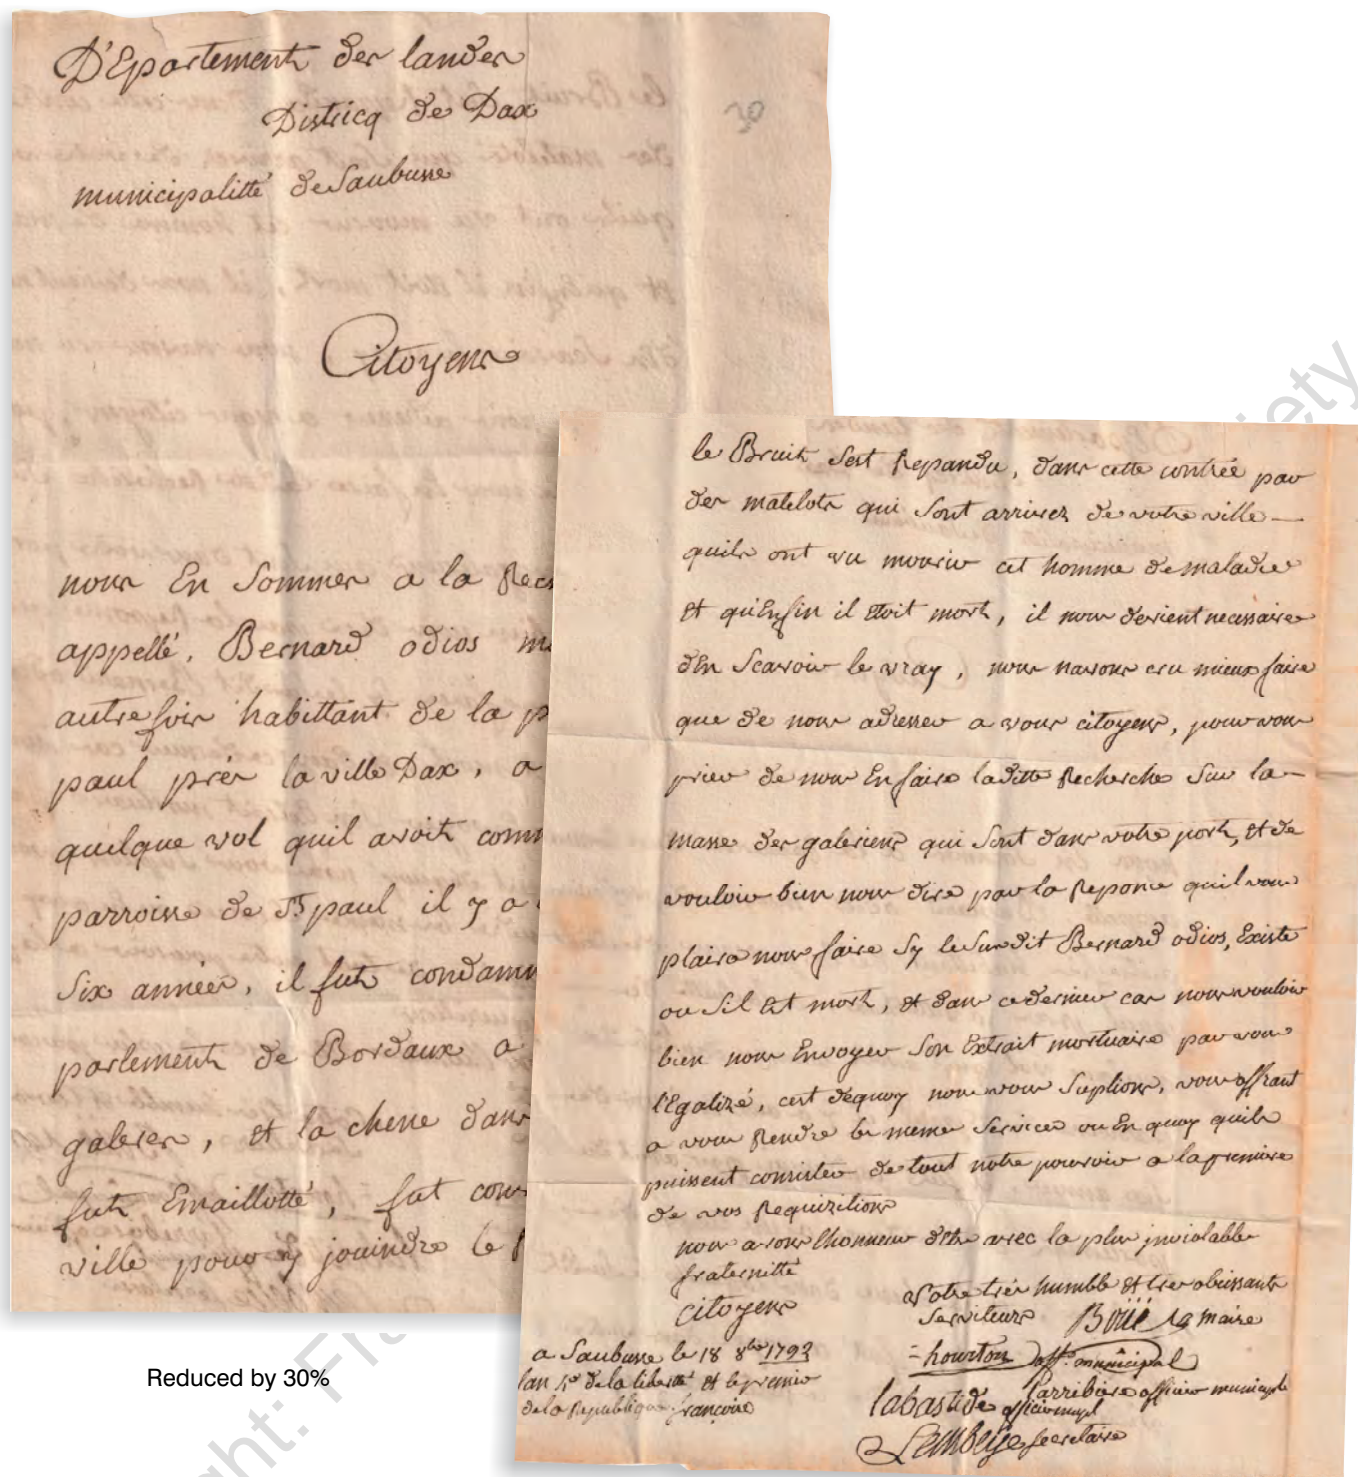 D'Epartement des landes
Districq de Dax
30
municipalitté de Saubusse
Citoyens
nous En Sommes a la Rec
appellé, Bernard odios m
autrefois habittant de la p
paul prés la ville Dax, a
quelque vol quil avoit comm
parroisse de St paul il y a
Six années, il fut condamn
parlement de Bordaux a
galeres, et la chene dans
fut Emaillotté, fut con
ville pour y jouindre le
le Bruit Sest Repandu, dans cette contrée par
des matelots qui Sont arrivez de votre ville
quils ont vu mourir cet homme de maladie
et qu'Enfin il Etoit mort, il nous devient necessaire
d'En Scavoir le vray, nous navons cru mieux faire
que de nous adresser a vous citoyens, pour vous
prier de nous En faire laditte Recherche Sur la
masse des galeriens qui Sont dans votre port, et de
vouloir bien nous dire par la Reponce quil vous
plaira nous faire Sy le Susdit Bernard odios, Existe
ou Sil Est mort, et dans ce dernier cas nous vouloir
bien nous Envoyer Son Extrait mortuaire par vous
l'Egalizé, cest dequoy nous vous Suplions, vous offrant
a vous Rendre le meme Services ou En quoy quils
puissent consister de tout notre pouvoir a la premiere
de vos Requizitions
nous avons lhonneur detre avec la plus inviolable
fraternitté
citoyens
Votre trés humble et tres obeissants
Serviteurs Boüé maire
a Saubusse le 18 8bre 1792
hourton off. municipal
lan 4e de la liberté et le premier
de la Republique françoise
Larribiere officier municipal
labastide officier mupl
Lembeye Secretaire
Reduced by 30%